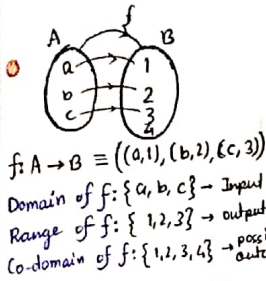 f
A B
a 1
b 2
c 3
4
f: A → B ≡ ((a,1), (b,2), (c,3))
Domain of f: {a, b, c} → Input
Range of f: { 1,2,3} → output
Co-domain of f: {1,2,3,4} →